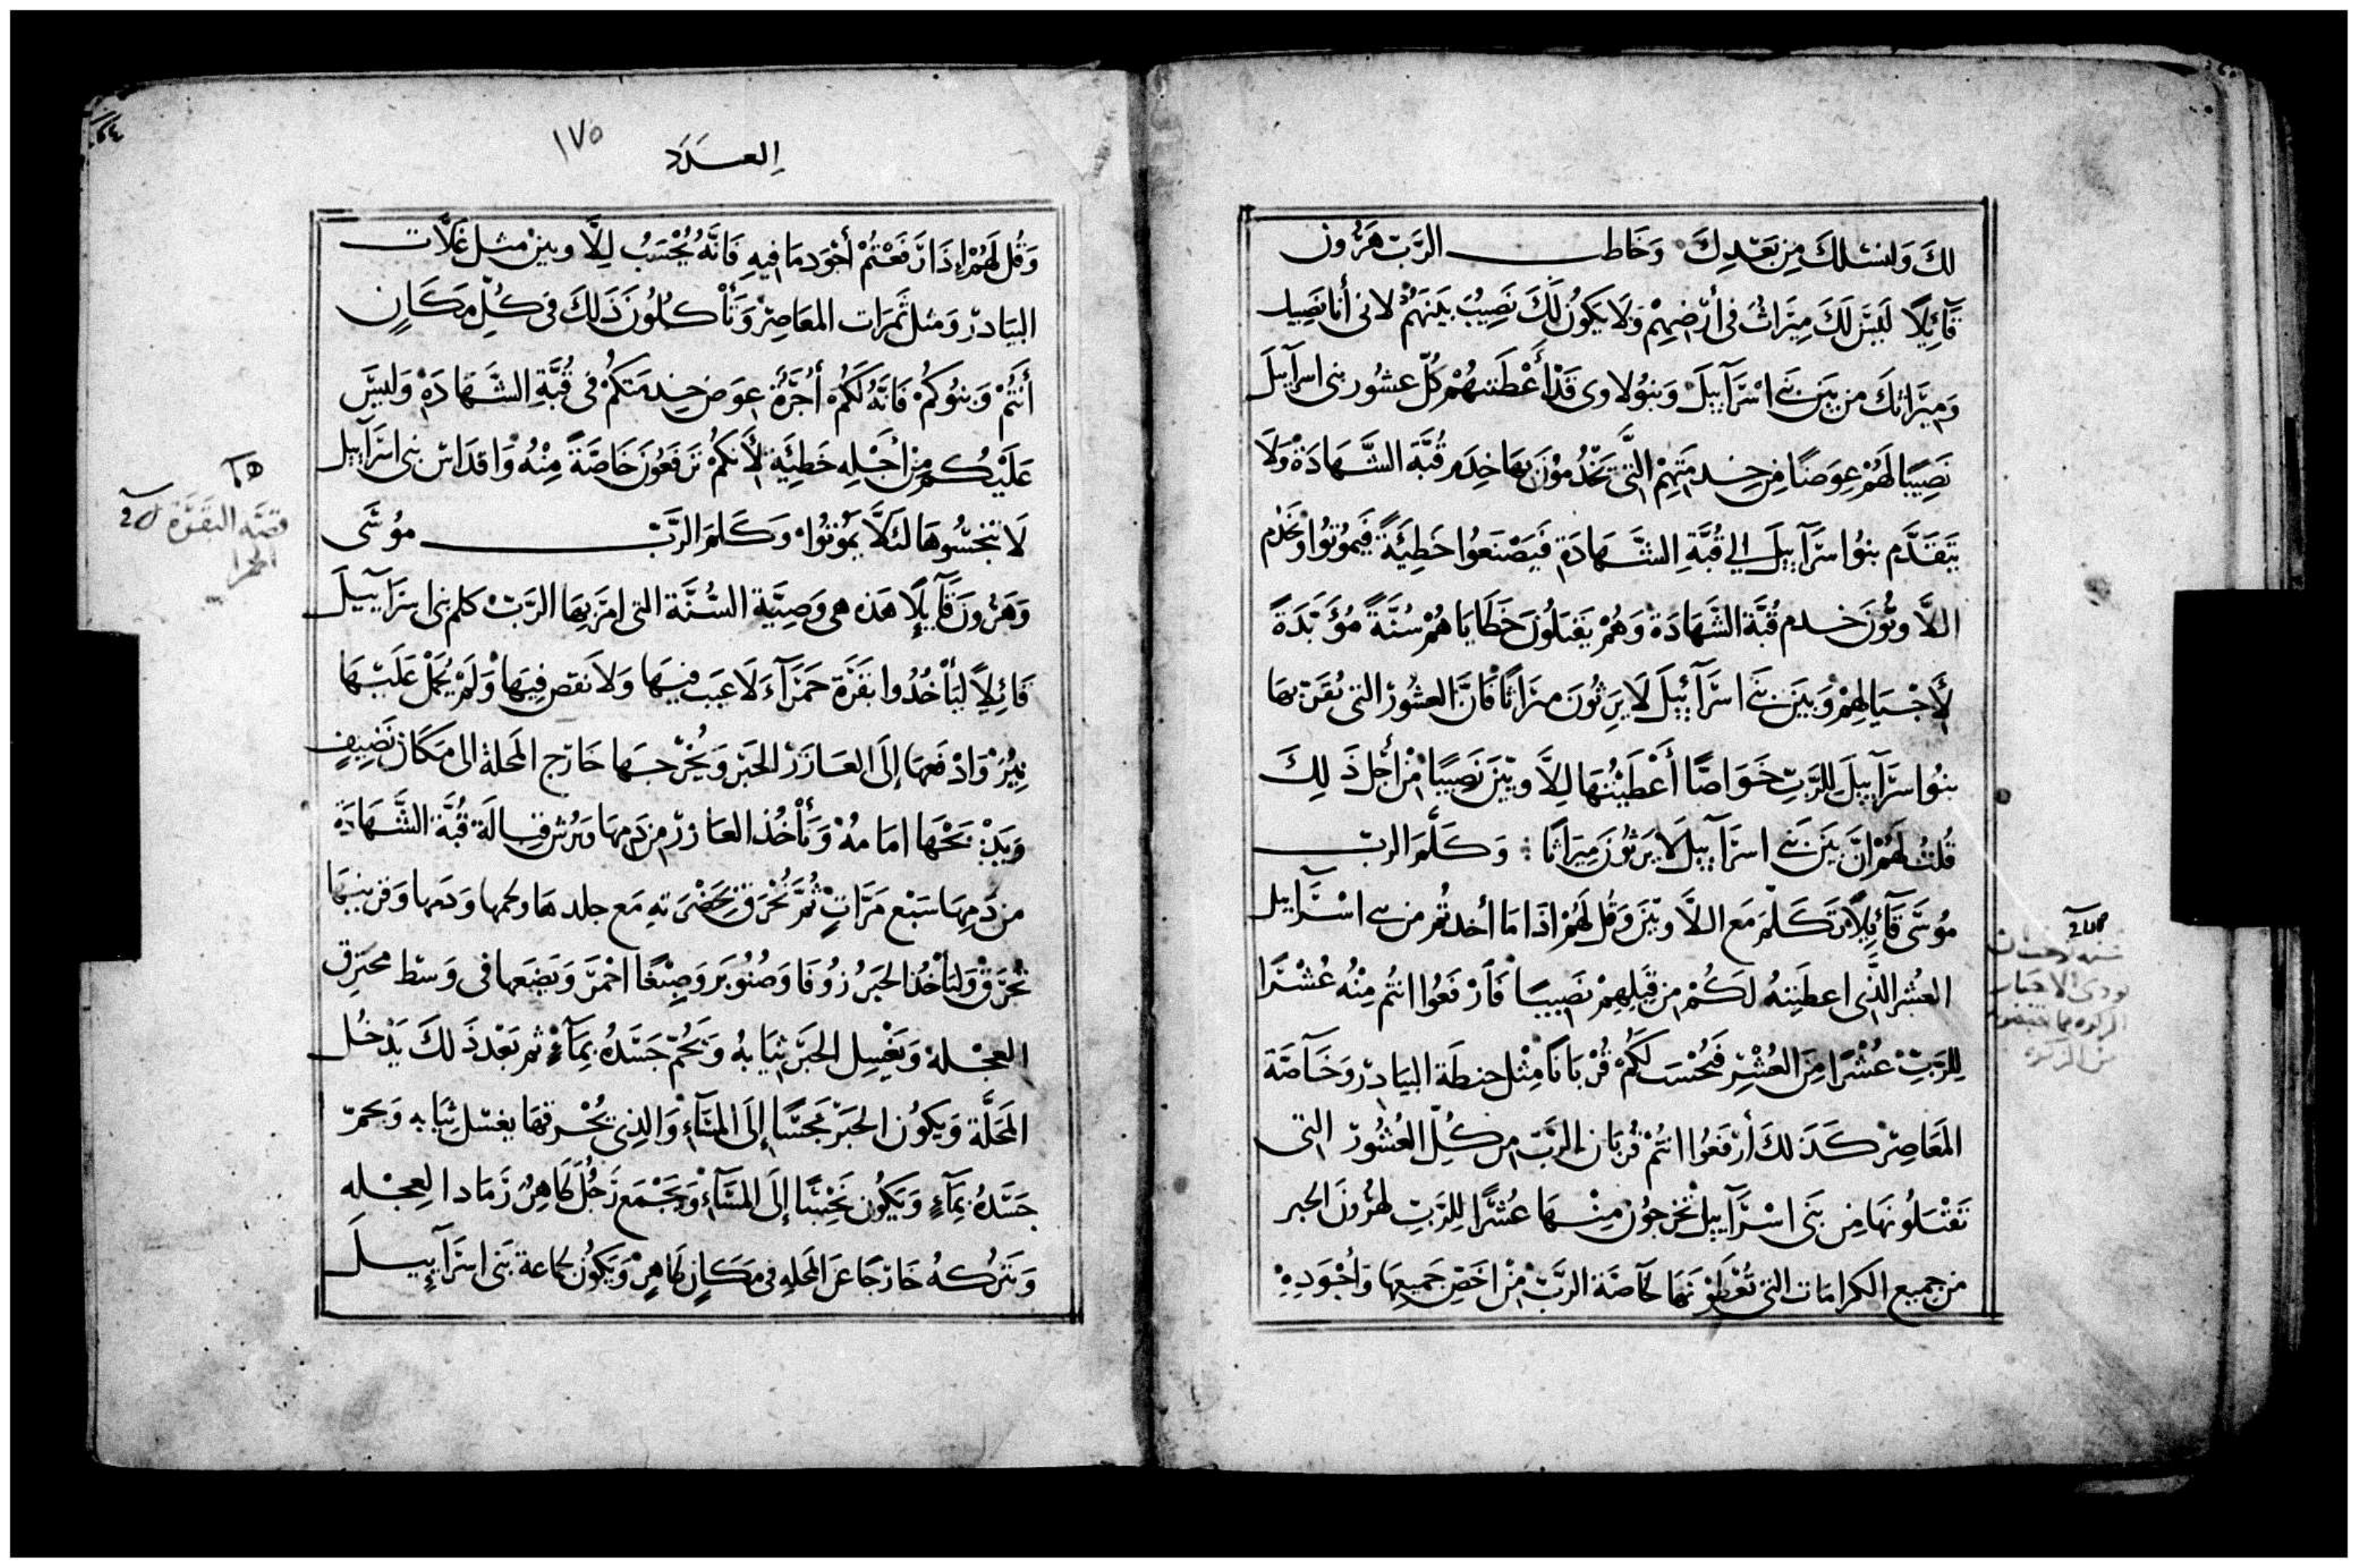 لكَ وَلنسْلكَ مِن بَعْدِكَ وَخَاطب الرَّبّ هَرُون
قَآئِلاً لَيسَ لَكَ مِيَراثٌ في أرْضِهِمْ وَلَا يَكَوُنُ لَكَ نَصِيْبٌ بَينَهمُ لانى أنا نَصِيبك
وَميَراثكَ من بَين بَني اسْرَآييلَ وَبنوُ لاوى قَدْ أَعْطَيتهُمْ كلّ عشُور بنى اسرآييلَ
نَصِيبًا لَهُمْ عِوَضًا مِن خِدمَتِهِمْ التَّى يَخْدُمُوْنَ بهَا خِدَم قُبَّة الشَّهَادَةْ وَلَا
يَتَقَدَّم بنوُا اسرَآييلَ الي قُبَّةِ الشَّهَادَةِ فَيَصْنَعُوا خَطِئَةً فَيمُوتُوا وَيخْدم
اللَّاويُّونَ خدم قُبَّة الشَّهَادَة وَهُمْ يَقبَلُونَ خَطَايَاهُمْ سُنَّةً مُؤَبّدَةً
لأَجْيَالِهِمْ وَبَين بَني اسرَآئيلَ لَا يَرِثُونَ ميرَاثًا فَانَّ العشُورْ التى يُقَرّبهَا
بنوُا سرَآييلَ لِلرَّبّ خَوَاصًّا أَعْطَيْتُهَا لِلَّاويّينَ نَصِيبًا مْن أجْل ذَلِكَ
قُلتُ لَهُمْ انَّ بَين بَني اسرَآييلَ لَا يَرثُونَ مِيَراثًا وَكَلَّمَ الربّ
مُوسَى قَآئِلاً تَكَلّمَ مَع اللَّاويّينَ وَقُل لَهُمْ اذَا مَا أخدتُم من بني اسْرَآييل
العُشر الذَّى اعطَيتهُ لَكُمْ مِن قِبَلِهِمْ نَصِيبًا فَارْفَعُوا انتُم مِنْهُ عُشْرًا
لِلرَبّ عُشْرًا مِنَ العُشْرِ فَيُحْسَب لَكُمْ قُرْبَانًا مِثْل حِنطَة البيَادرْ وَخَآصَّة
المَعَاصِرْ كَدَلكَ أرْفَعُوا انتُمْ قُربَان الرَبّ مِن كُلّ العُشُورْ التى
تَقْبَلُونهَا مِن بَنى اسْرَآييل تُخرجُون مِنْهَا عُشْرًا لِلرَبّ لهَرُونَ الحبر
من جميع الكرامَات التى تُعْطَوْنَهَا خَاصَة الرَبّ مْن اخَصّ جَمِيعِهَا وَأجْوَدِهِ
١٧٥
العدَد
وَقُل لَهُمْ إذَا رَفَعْتُمْ أجْوَد مَا فيهِ فَانَّهُ يُحْسَبُ لِلَّاويين مثل غلَّات
البيَادرْ وَمثل ثَمَرَات المعَاصِرْ وَتَأكُلُونَ ذَلكَ في كُلّ مَكَانٍ
أنتُمْ وَبَنوُكمُ فَانَّهُ لَكُمْ أُجْرَةٌ عِوَض خِدمَتكمُ في قُبَّةِ الشَّهَادَةِ وَلَيسَ
عَلَيْكُم مِن أجْلِهِ خَطِئَة لأَنكُمُ تَرفَعُونَ خَاصَّةً مِنْهُ وَاقدَاس بنى اسرَآييل
لَا تنَجسُّوهَا لئَلَّا تَموُتوُا وَكَلم الرَّبّ موُسَى
وَهَرُونَ قَآيِلًا هَذه هى وَصِيَّة السُّنَّة التى امَرَ بِهَا الرَّبّ كلم بنى اسرَآييلَ
قَائِلاً ليَأخُدُوا بَقَرَة حَمرَآءَ لَا عَيبَ فيهَا وَلَا نَقص فِيهَا وَلَمْ يُحمَلْ عَلَيْهَا
نِيرٌ وَادْفَعهَا إلَى العَازَرْ الحَبْر وَيُخْرجهَا خَارَج المَحلة الى مَكَان نَضِيفٍ
وَيَدْبَحْهَا امَامهُ وَيَأخُذ العَازرْ مِن دَمِهَا وَيَرُش قبَالَة قُبَّة الشَّهَادَة
من دَمِهَا سَبْع مَرَّاتٍ ثُمَّ تُحْرَق بحَضْرَتهِ مَع جلدهَا ولحمهَا وَدَمهَا وَفرثهَا
تُحْرَقْ وَليَأخُذ الحَبَرُ زُوفَا وَصُنُوبَر وَصِبْغًا احْمَرَ وَيَضِعهَا في وَسْط محترِق
العجْلهْ وَيَغْسِل الحَبْر ثِيَابهُ وَيَحُمّ جَسَدُه بِمَآءٍ ثمَ بَعْدَ ذَلكَ يَدْخُل
المَحَلَّة وَيَكونُ الحَبْر نَجسًا إلَى المسَآءِ وَالذِى يحْرقهَا يغسْل ثيَابه وَيحمّ
جَسَدهُ بِمَآءٍ وَيَكُون نَجِسًا إلَى المسَآءِ وَيَجْمَع رَجُلٌ طَاهِرٌ رَمَاد العِجْلهِ
وَيَتركهُ خَارجًا عَن المَحلهِ في مَكَانٍ طَاهِرٍ وَيَكُونُ لجمَاعة بَنى اسرَآيِيلَ
قصّه البقرَة
الحمرا